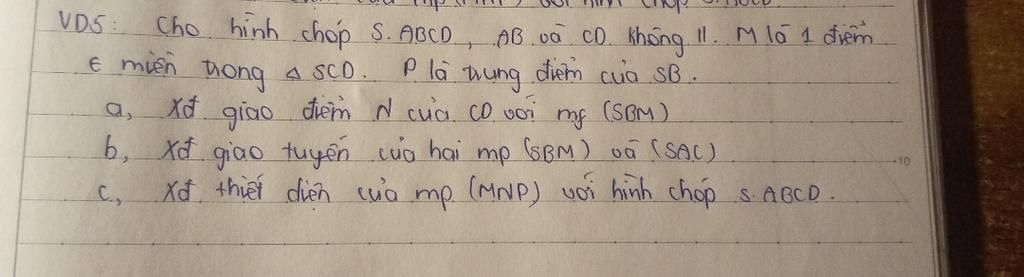 VD5: Cho hình chóp S.ABCD, AB và CD không //. M là 1 điểm
∈ miền trong △ SCD. P là trung điểm của SB.
a, Xđ giao điểm N của CD với mf (SBM)
b, Xđ giao tuyến của hai mp (SBM) và (SAC)
10
c, Xđ thiết diện của mp (MNP) với hình chóp S.ABCD.